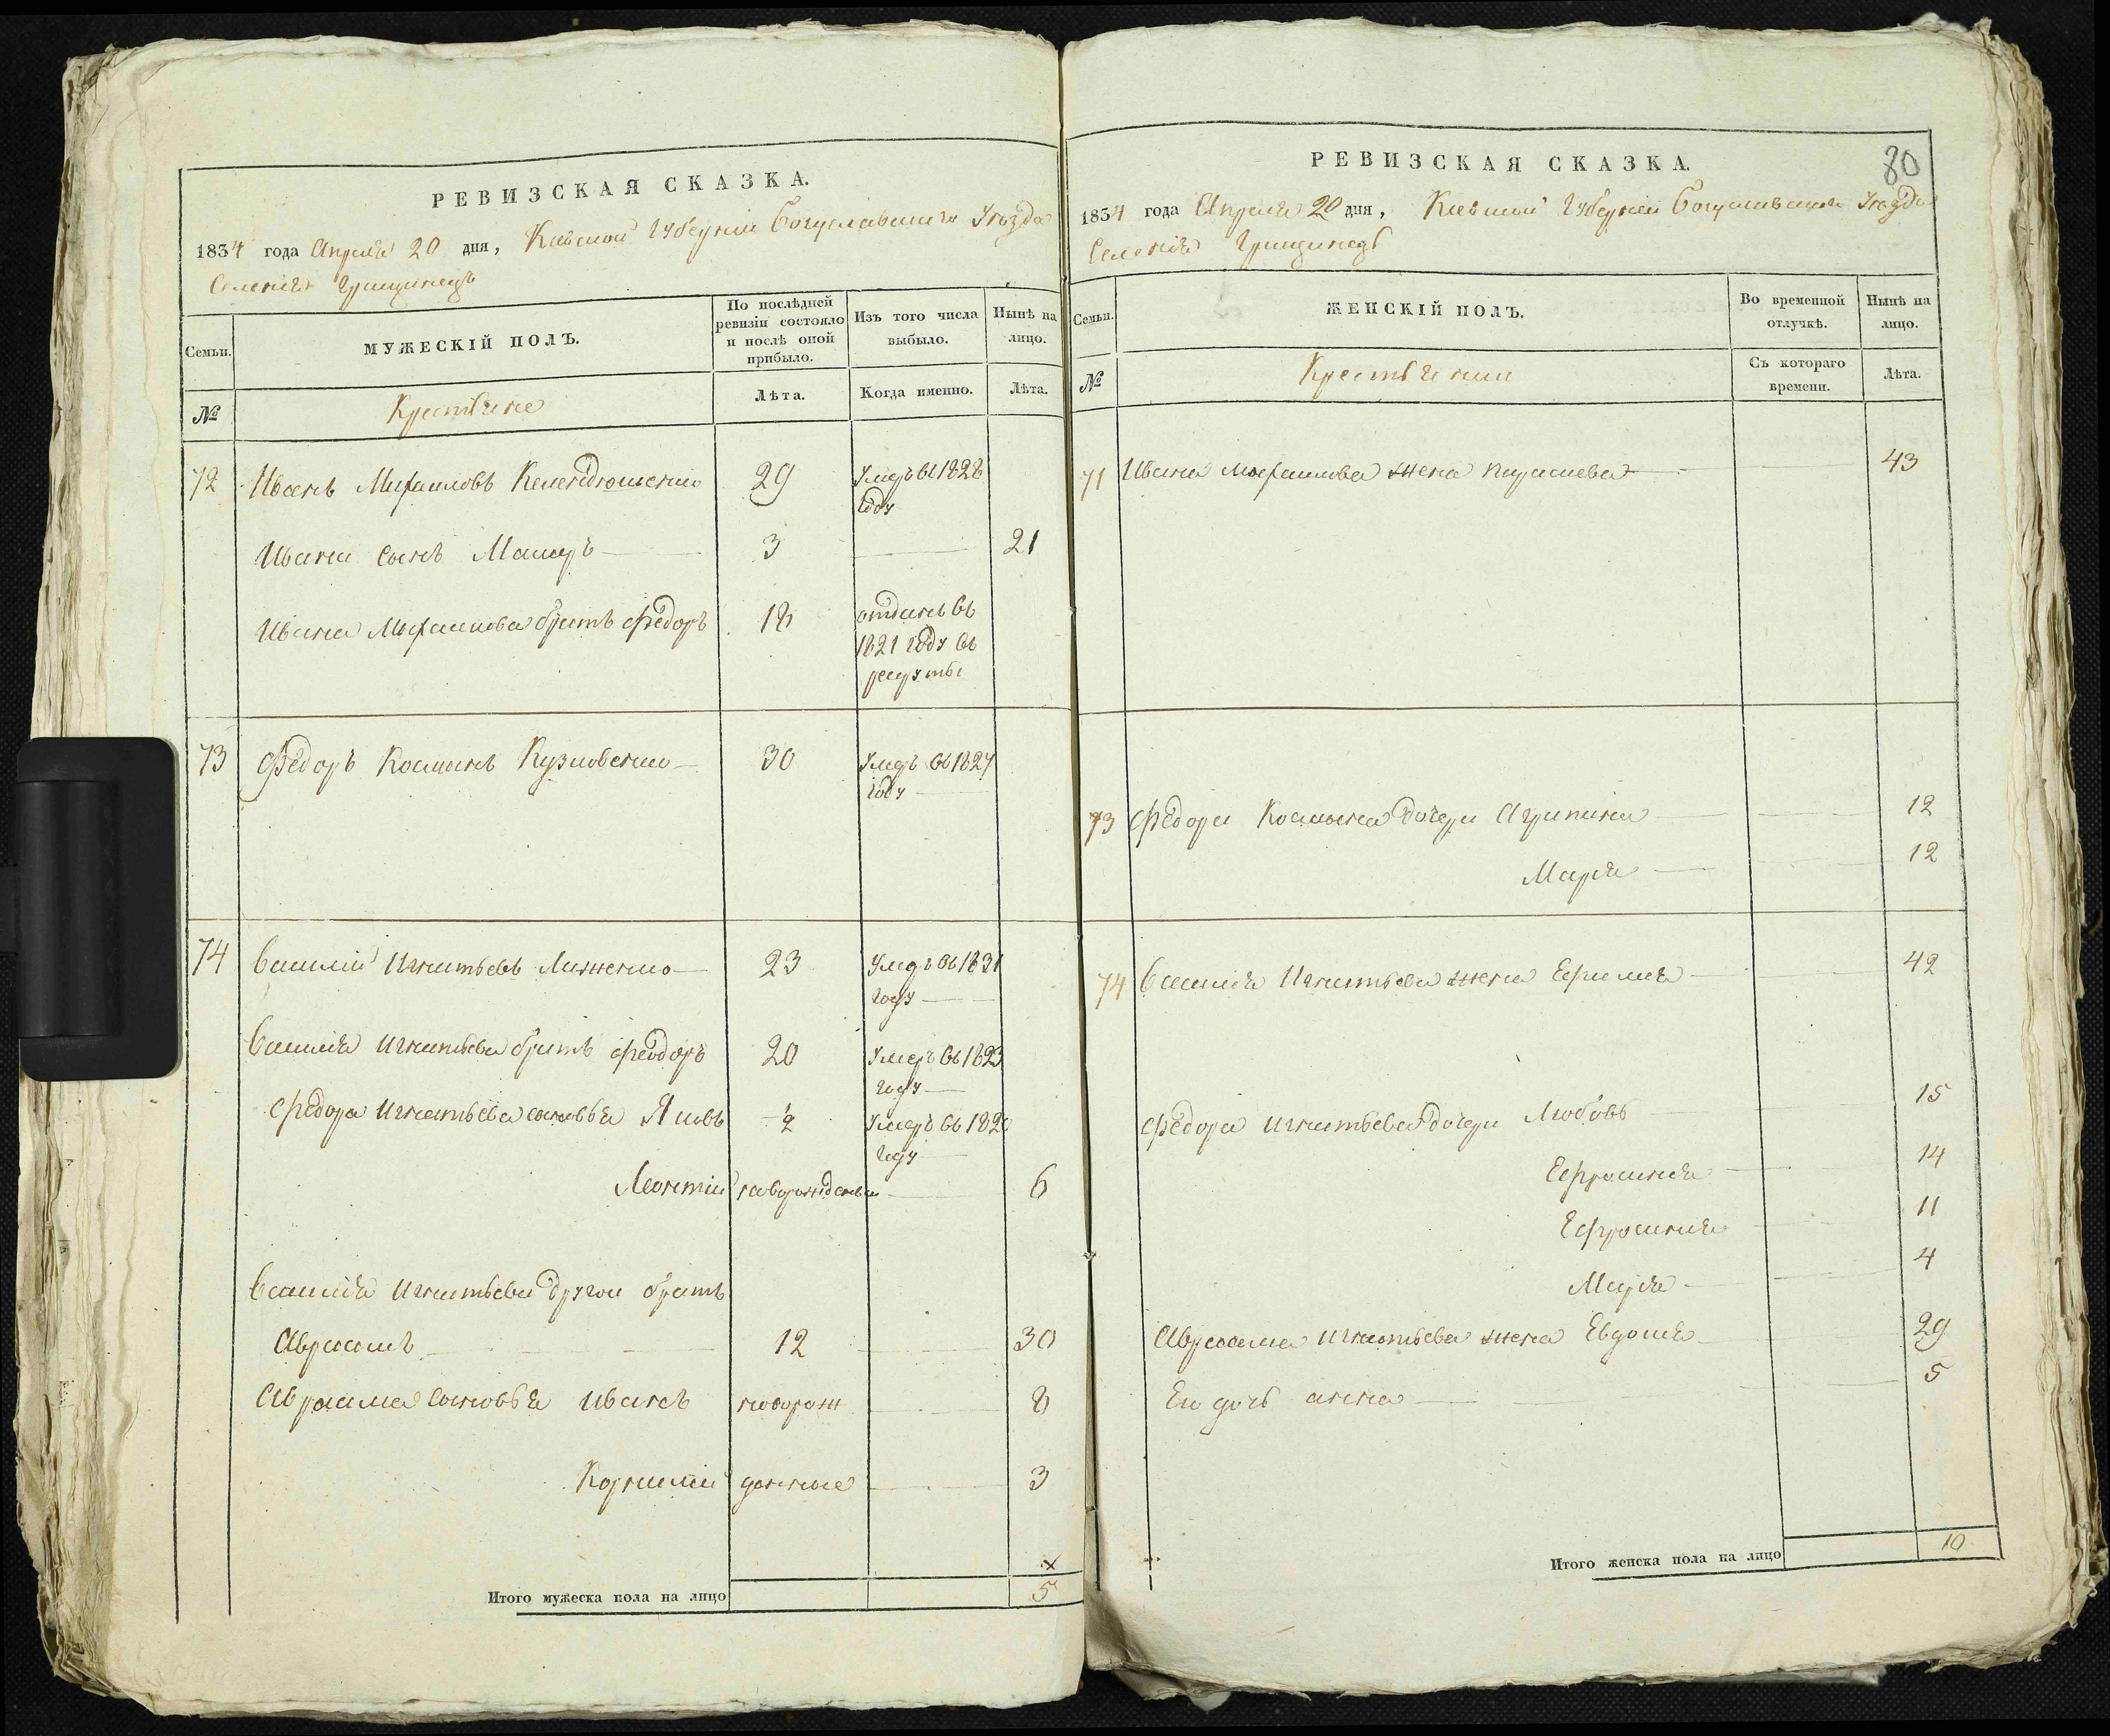 РЕВИЗСКАЯ СКАЗКА.
1834 года Апреля 20 дня, Киевской Губернiи Богуславскаго Уезда
Селенiя Грищинецъ
Семьи.
МУЖЕСКIЙ ПОЛЪ.
По послѣдней ревизiи состояло и послѣ оной прибыло.
Изъ того числа выбыло.
Нынѣ на лицо.
№
Крестьяне
Лѣта.
Когда именно.
Лѣта.
72 Иванъ Михаиловъ 29 Умеръ въ 1828
году
Ивана сынъ Макаръ 3 21
Ивана Михаилова братъ Федоръ 18 отданъ въ
1821 году въ
рекруты
73 Федоръ Косминъ Кузмовенко 30 Умеръ въ 1827
году
74 Василiй Игнатьевъ 23 Умеръ въ 1831
году
Василiя Игнатьева братъ Феодоръ 20 Умеръ въ 1823
году
Федора Игнатьева сыновья Яковъ ½ Умеръ въ 1820
году
Леонтiй новорожденъ 6
Василiя Игнатьева другой братъ
Авраамъ 12 30
Авраама сыновья Иванъ новорож 8
Корнилiй денные 3
×
Итого мужеска пола на лицо 5
80
РЕВИЗСКАЯ СКАЗКА.
1834 года Апреля 20 дня, Киевской Губернiи Богуславскаго Уезда
Селенiя Грищинецъ
Семьи.
ЖЕНСКIЙ ПОЛЪ.
Во временной отлучкѣ.
Нынѣ на лицо.
№
Крестьянки
Съ котораго времени.
Лѣта.
71 Ивана Михаилова жена Параскева 43
73 Федора Космына дочери Агрипина 12
Марiя 12
74 Василiя Игнатьева жена 42
Федора Игнатьева дочери Любовь 15
Ефросинiя 14
Ефросинiя 11
Марiя 4
Авраама Игнатьева жена Евдокiя 29
Его дочь анна 5
Итого женска пола на лицо 10